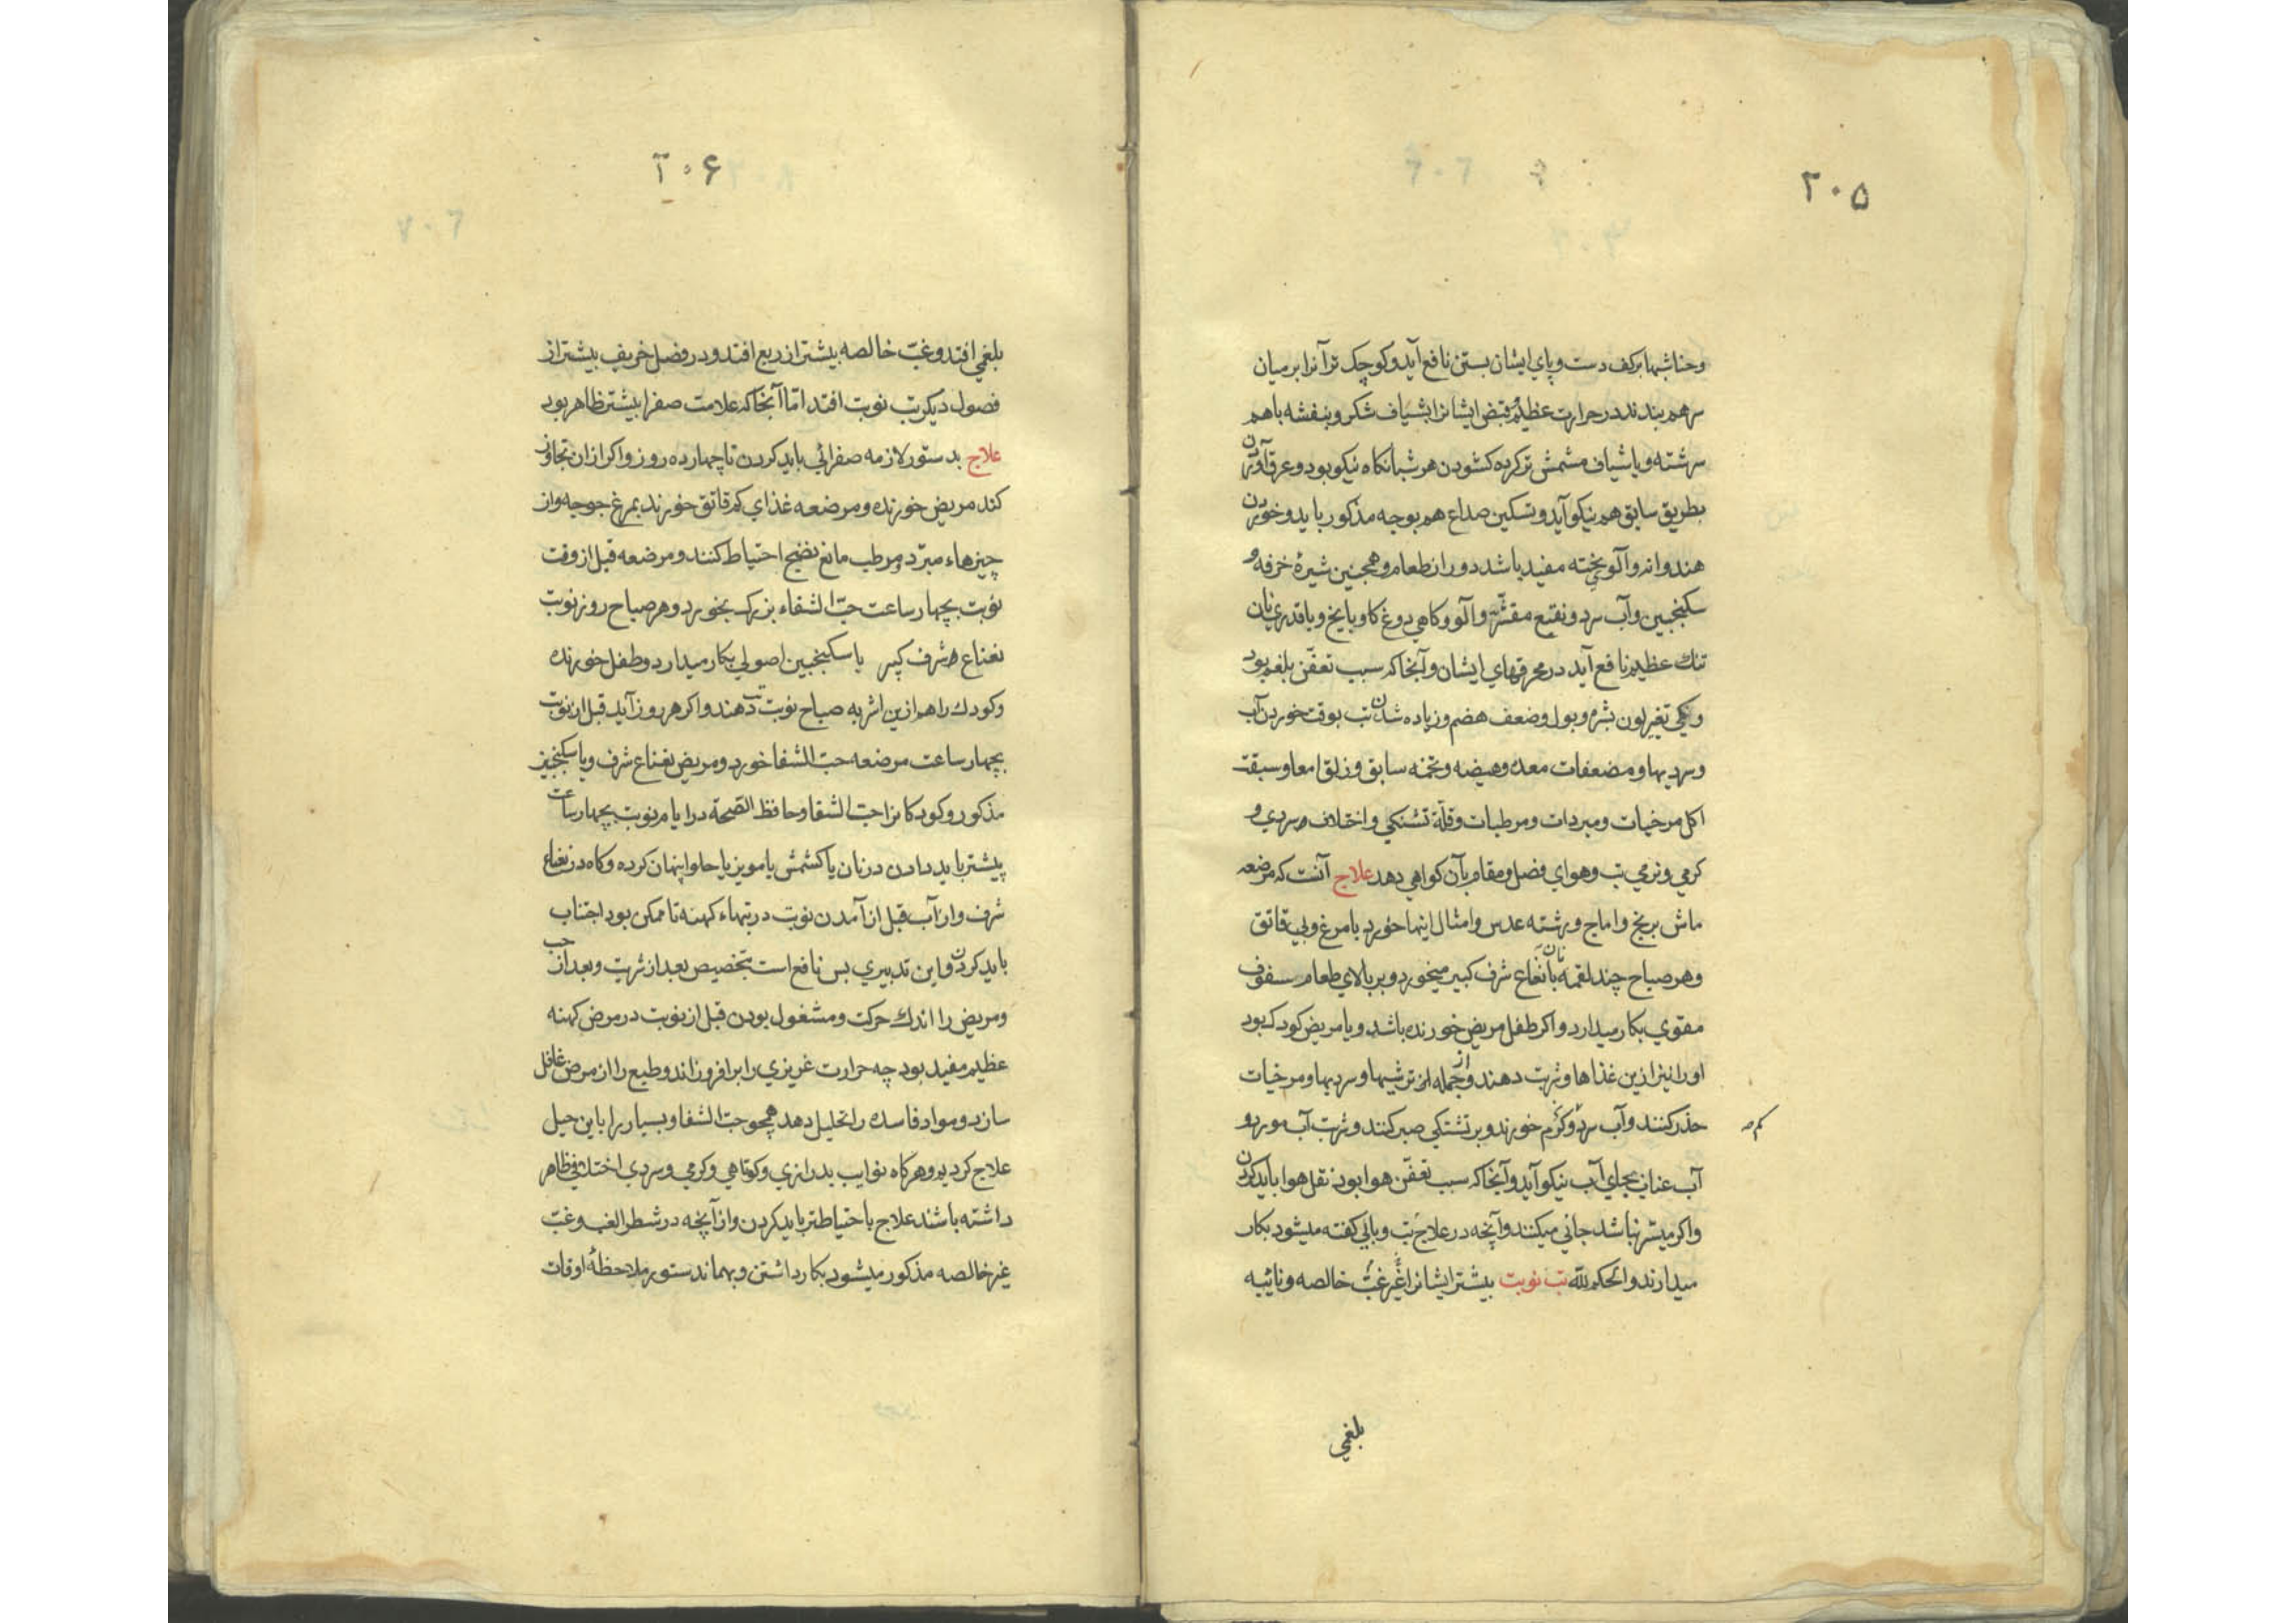 ۲۰۵
وحنا شبها بر کف دست و پای ایشان بستن نافع آید و کوچک تر آنرا بر میان
سر هم بندند در حرارت عظیم قبض ایشانرا بشیاف شکر و بنفشه باهم
سرشته و یا شیاف مشمش تر کرده کشودن هر شبانکاه نیکو بود و عرق آوردن
بطریق سابق هم نیکو آید و تسکین صداع هم بوجه مذکور باید و خوردن
هندوانه و آلو پخته مفید باشد دوران طعام و همچنین شیرۀ خرفه و
سکنجبین و آب سرد و نقیع مقشر و آلو و کاهی دوغ کاو با یخ و با قدری نان
تنك عظیم نافع آید در محرقهای ایشان و آنجا که سبب تعفّن بلغم بود
و نیکی تغیر لون بشره و بول و ضعف هضم و زیاده شدن تب بوقت خوردن آب
و سردیها و مضعفات معده و هیضه و تخمه سابق و زلق امعا و سبقت
اکل مرخیات و مبردات و مرطبات و قلّة تشنکی و اختلاف سردی و
کرمی و نرمی تب و هوای فصل و مقام بآن کواهی دهد علاج آنست که مرضعه
ماش برنج و اماج و رشته عدس و امثال اینها خورد با مرغ و بی قاتق
و هر صباح چند لقمه نان با نعناع شرف کبیر میخورد و بر بالای طعام سفوف
مقوی بکار میدارد و اکر طفل مریض خورنده باشد و یا مریض کودک بود
او را نیز ازین غذاها و شربت دهند و از جمله ترشیها و سردیها و مرخیات
حذر کنند و آب سرد و کرم خورند و بر تشنکی صبر کنند و شربت آب مورد و
کم صه
آب عناب بجای آب نیکو آید و آنجا که سبب تعفّن هوا بود نقل هوا باید کردن
و اکر میسّر نباشد جانی میکنند و آنچه در علاج تب وبایی کفته میشود بکار
میدارند و الحکم لله تب نوبت بیشتر ایشانرا غیر غبّ خالصه و نائبه
بلغمی
۲۰۶
بلغمی افتد و غبّ خالصه بیشتر از ربع افتد و در فصل خریف بیشتر از
فصول دیکر تب نوبت افتد امّا آنجا که علامت صفرا بیشتر ظاهر بود
علاج بدستور لازمه صفرائی باید کردن تا چهارده روز و اکر ازان تجاوز
کند مریض خورنده و مرضعه غذای کم قاتق خورند بمرغ جوجه و از
چیزهاء مبرّد و مرطب مانع نضج احتیاط کنند و مرضعه قبل از وقت
نوبت بچهار ساعت حبّ الشفاء بزرك بخورد و هر صباح روز نوبت
نعناع شرف کبیر یا سکنجبین اصولی بکار میدارد و طفل خورنده
و کودك را هم ازین اشربه صباح نوبت تب دهند و اکر هر روز آید قبل از نوبت
بچهار ساعت مرضعه حبّ الشفا خورد و مریض نعناع شرف و یا سکنجبین
مذکور و کودکانرا حبّ الشفا و حافظ الصّحة در ایام نوبت بچهار ساعت
پیشتر باید دادن در نان یا کشمش یا مویز یا حلوا پنهان کرده و کاه در نعناع
شرف و از آب قبل از آمدن نوبت در تبهاء کهنه تا ممکن بود اجتناب
باید کردن و این تدبیری بس نافع است بتخصیص بعد از شربت و بعد از حب
و مریض را اندك حرکت و مشغول بودن قبل از نوبت در مرض کهنه
عظیم مفید بود چه حرارت غریزی را بر افروزاند و طبع را از مرض غافل
سازد و مواد فاسده را تحلیل دهد همچو حبّ الشفا و بسیار را باین حیل
علاج کردیم و هر کاه نوایب بدرازی و کوتاهی و کرمی و سردی اختلافی ظاهر
داشته باشند علاج با حتیاطتر باید کردن و از آنچه در شطر الغب و غبّ
غیر خالصه مذکور میشود بکار داشتن و بهمان دستور ملاحظۀ اوقات